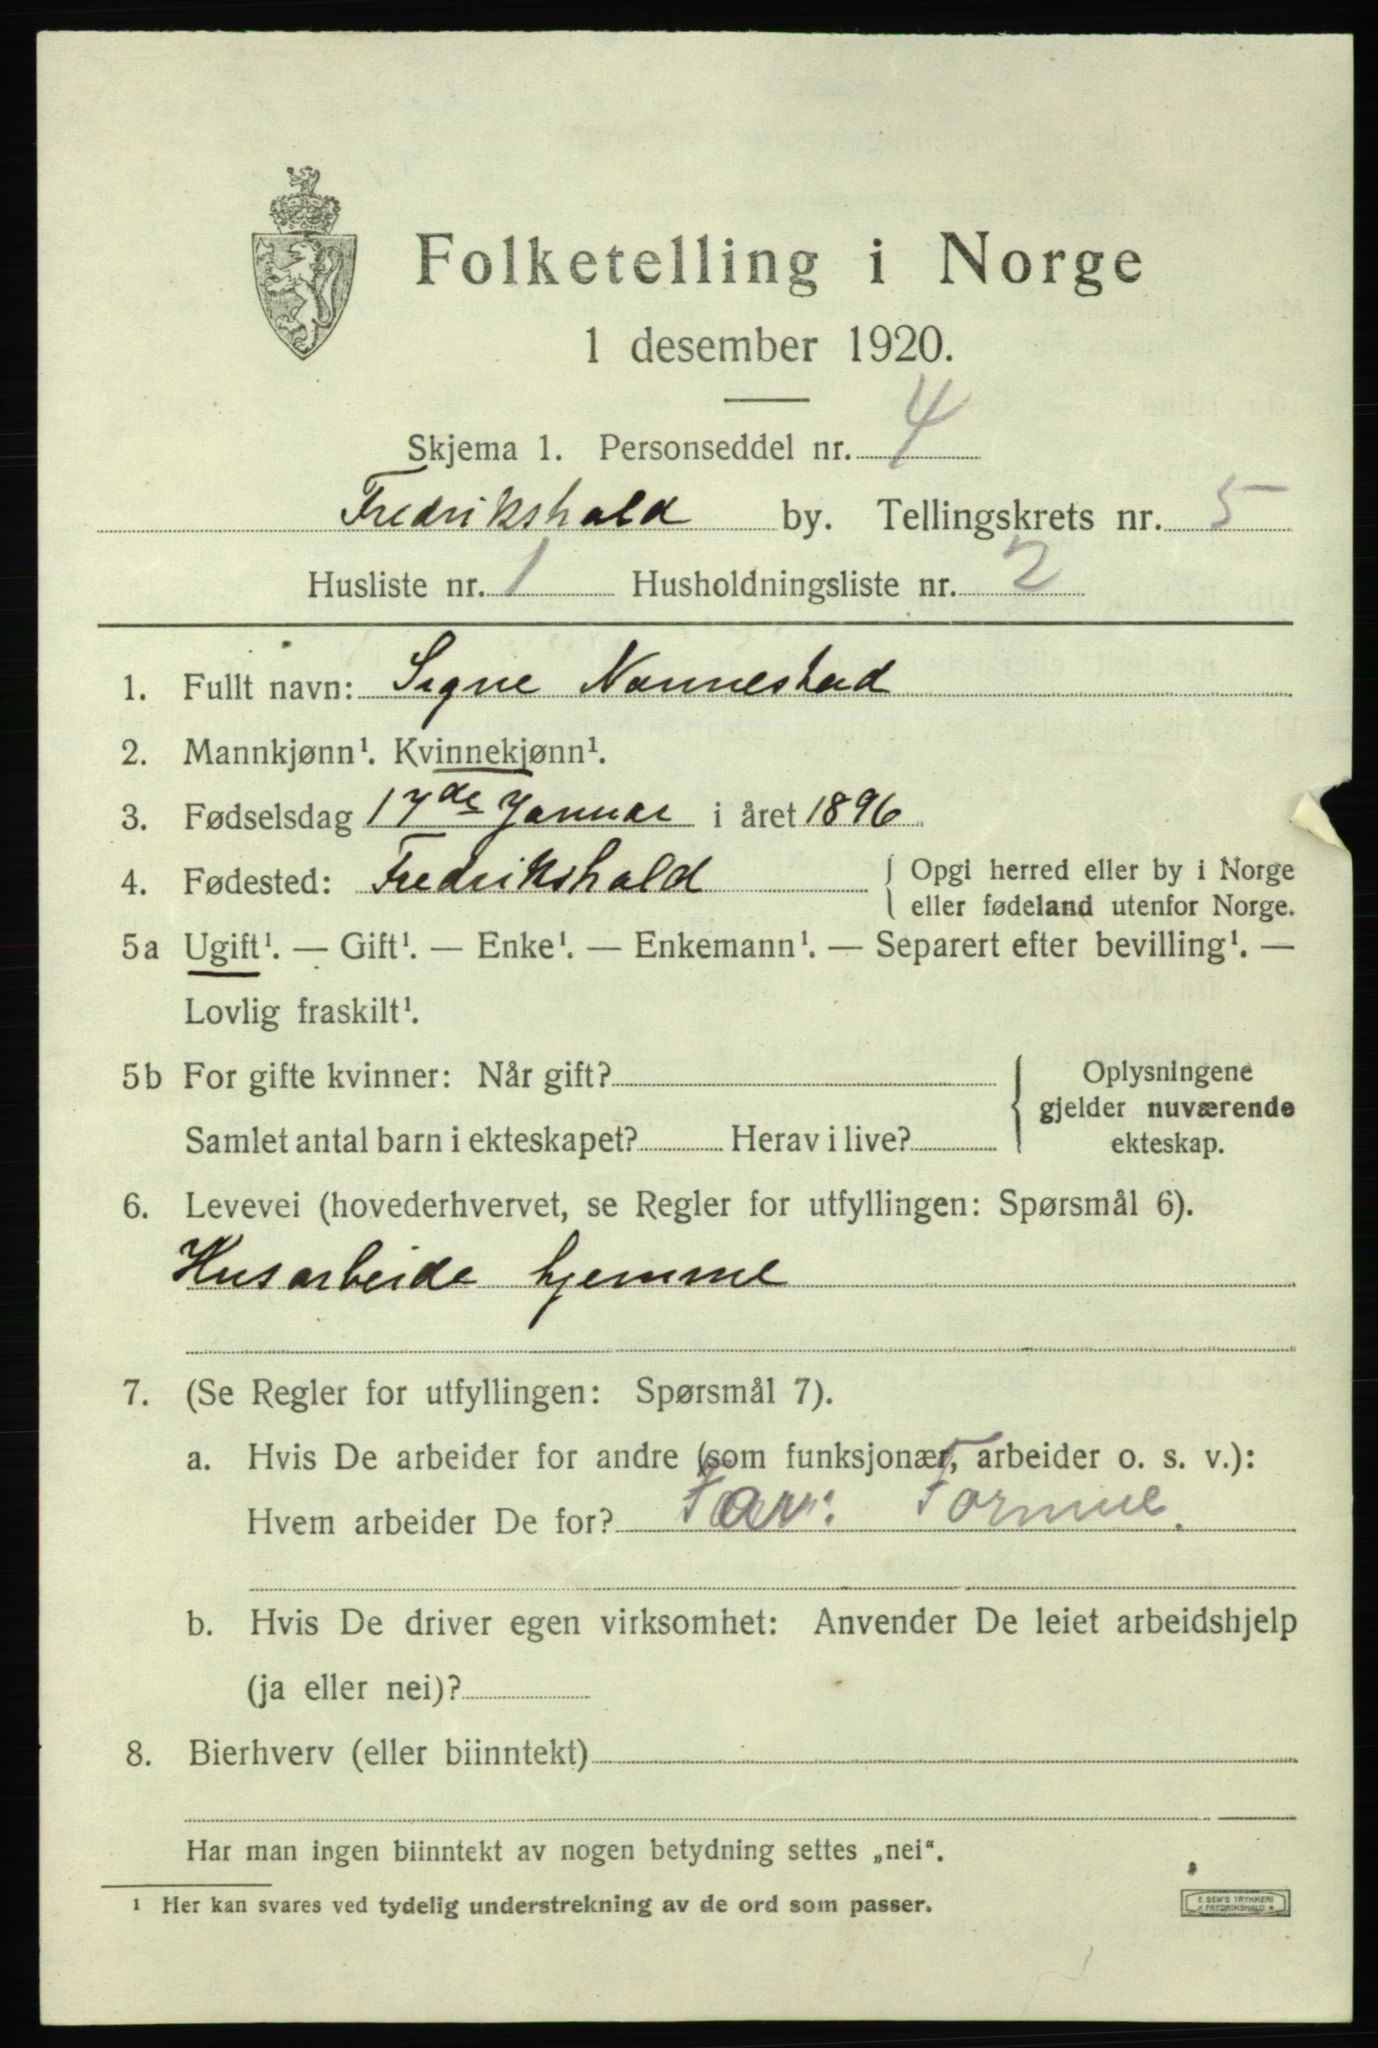 Folketelling i Norge
1 desember 1920.
Skjema 1. Personseddel nr. 4
Fredrikshald by. Tellingskrets nr. 5
Husliste nr. 1 Husholdningsliste nr. 2
1. Fullt navn: Signe Nannestad
2. Mannkjønn¹. Kvinnekjønn¹.
3. Fødselsdag 17de Januar i året 1896
4. Fødested: Fredrikshald { Opgi herred eller by i Norge
eller fødeland utenfor Norge.
5a Ugift¹. — Gift¹. — Enke¹. — Enkemann¹. — Separert efter bevilling¹. —
Lovlig fraskilt¹.
5b For gifte kvinner: Når gift? { Oplysningene
gjelder nuværende
Samlet antal barn i ekteskapet? Herav i live? ekteskap.
6. Levevei (hovederhvervet, se Regler for utfyllingen: Spørsmål 6).
Husarbeide hjemme
7. (Se Regler for utfyllingen: Spørsmål 7).
a. Hvis De arbeider for andre (som funksjonær, arbeider o. s. v.):
Hvem arbeider De for? Far:
b. Hvis De driver egen virksomhet: Anvender De leiet arbeidshjelp
(ja eller nei)?
8. Bierhverv (eller biinntekt)
Har man ingen biinntekt av nogen betydning settes „nei“.
¹ Her kan svares ved tydelig understrekning av de ord som passer.
E. SEM'S TRYKKERI
FREDRIKSHALD